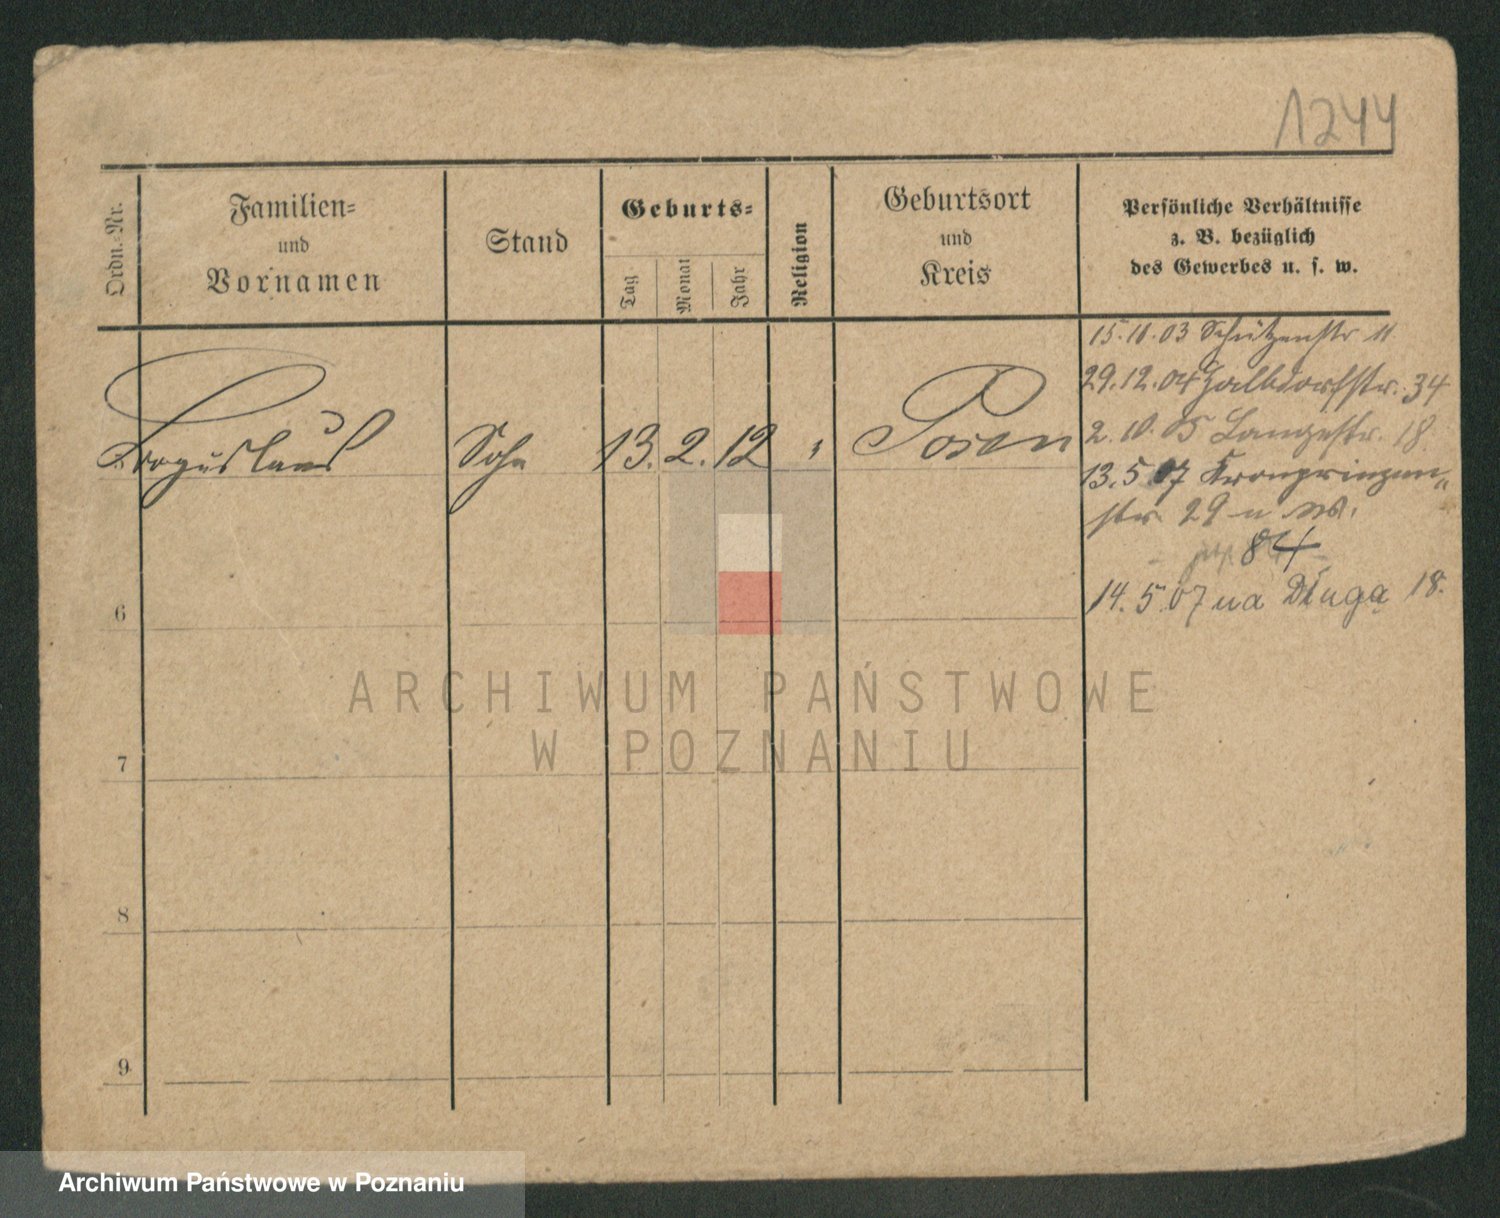 1244
Ordn.-Nr.
Familien-
und
Vornamen
Stand
Geburts-
Tag
Monat
Jahr
Religion
Geburtsort
und
Kreis
Persönliche Verhältnisse
z. B. bezüglich
des Gewerbes u. s. w.
Boguslaus Sohn 13. 2. 12 " Posen
15.10.03 Schützenstr 11
29.12.04 Halbdorfstr. 34
2.10.05 Langestr. 18
13.5.07 Kronprinzen„
str 29 n W.
84
14.5.07 na Długą 18.
6
7
8
9
ARCHIWUM PAŃSTWOWE
W POZNANIU
Archiwum Państwowe w Poznaniu